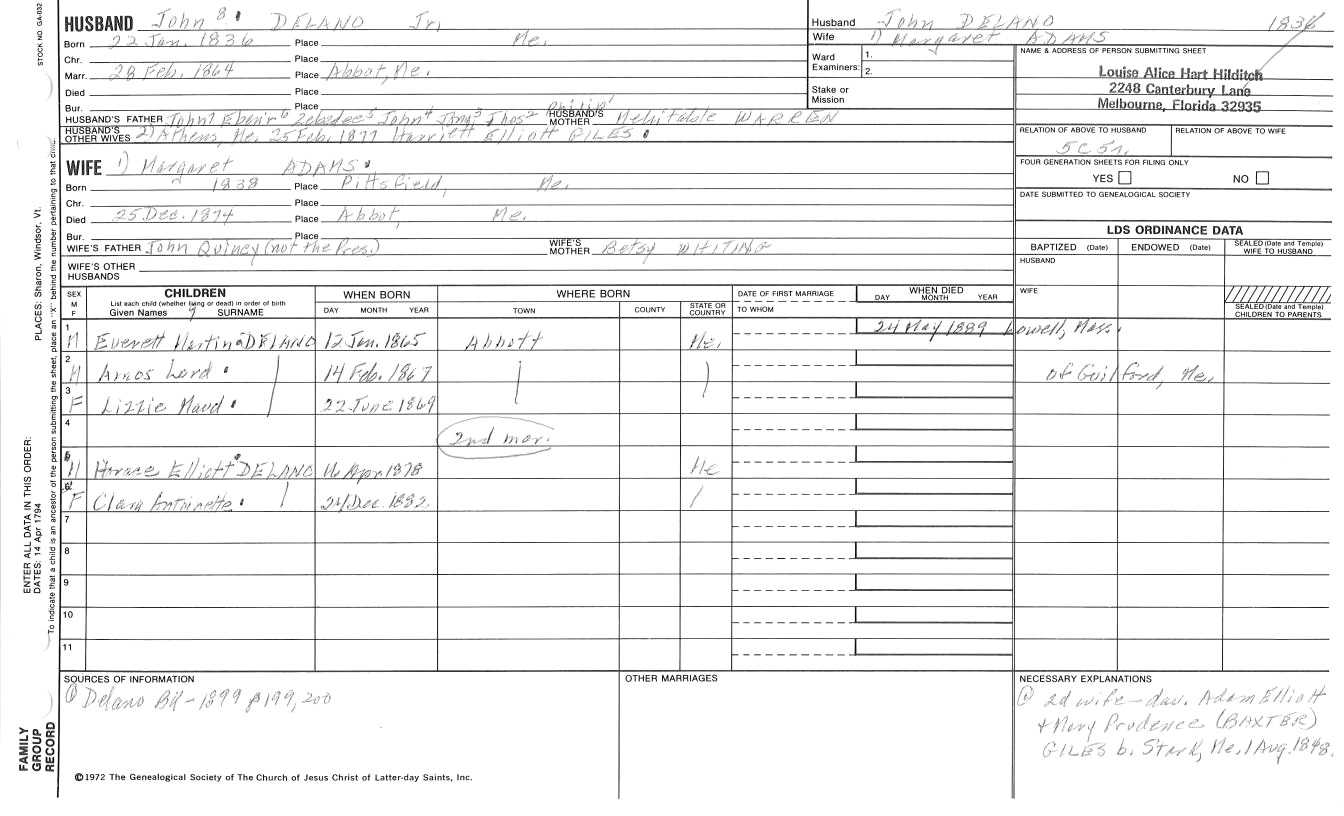 STOCK NO. GA-032
HUSBAND John 8 DELANO Jr.
Born 22 Jan. 1836 Place Me.
Chr. Place
Marr. 28 Feb. 1864 Place Abbot, Me.
Died Place
Bur. Place
HUSBAND'S FATHER John7 Eben'r6 Zebedee5 John4 Jona3 Thos2 Philip1 HUSBAND'S MOTHER Mehitable WARREN
HUSBAND'S OTHER WIVES 2) Athens, Me. 25 Feb. 1877 Harriett Elliott GILES
WIFE 1) Margaret ADAMS
Born 1838 Place Pittsfield, Me.
Chr. Place
Died 25 Dec. 1874 Place Abbot, Me.
Bur. Place
WIFE'S FATHER John Quincy (not the Pres.) WIFE'S MOTHER Betsy WHITING
WIFE'S OTHER HUSBANDS
Husband John DELANO 1836
Wife 1) Margaret ADAMS
Ward Examiners: 1.
2.
Stake or Mission
NAME & ADDRESS OF PERSON SUBMITTING SHEET
Louise Alice Hart Hilditch
2248 Canterbury Lane
Melbourne, Florida 32935
RELATION OF ABOVE TO HUSBAND RELATION OF ABOVE TO WIFE
5C 5r.
FOUR GENERATION SHEETS FOR FILING ONLY
YES NO
DATE SUBMITTED TO GENEALOGICAL SOCIETY
LDS ORDINANCE DATA
BAPTIZED (Date) ENDOWED (Date) SEALED (Date and Temple) WIFE TO HUSBAND
HUSBAND
WIFE
SEALED (Date and Temple) CHILDREN TO PARENTS
SEX M F CHILDREN List each child (whether living or dead) in order of birth Given Names SURNAME WHEN BORN DAY MONTH YEAR WHERE BORN TOWN COUNTY STATE OR COUNTRY DATE OF FIRST MARRIAGE TO WHOM WHEN DIED DAY MONTH YEAR
1 M Everett DELANO 12 Jan. 1865 Abbott Me. 24 May 1889 Lowell, Mass.
2 M Amos Lord 14 Feb. 1867 of Guilford, Me.
3 F Lizzie Maud 22 June 1869
4 2nd mar.
5 M Horace Elliott DELANO 16 Apr 1878 Me
6 F Clara Antoinette 24 Dec. 1882.
7
8
9
10
11
SOURCES OF INFORMATION
① Delano Bk - 1899 p199, 200
OTHER MARRIAGES
NECESSARY EXPLANATIONS
@ 2d wife - dau. Adam Elliott
+ Mary Prudence (BAXTER)
GILES b. Stark, Me. 1 Aug. 1848.
©1972 The Genealogical Society of The Church of Jesus Christ of Latter-day Saints, Inc.
FAMILY GROUP RECORD
ENTER ALL DATA IN THIS ORDER:
DATES: 14 Apr 1794
PLACES: Sharon, Windsor, Vt.
To indicate that a child is an ancestor of the person submitting the sheet, place an "X" behind the number pertaining to that child.